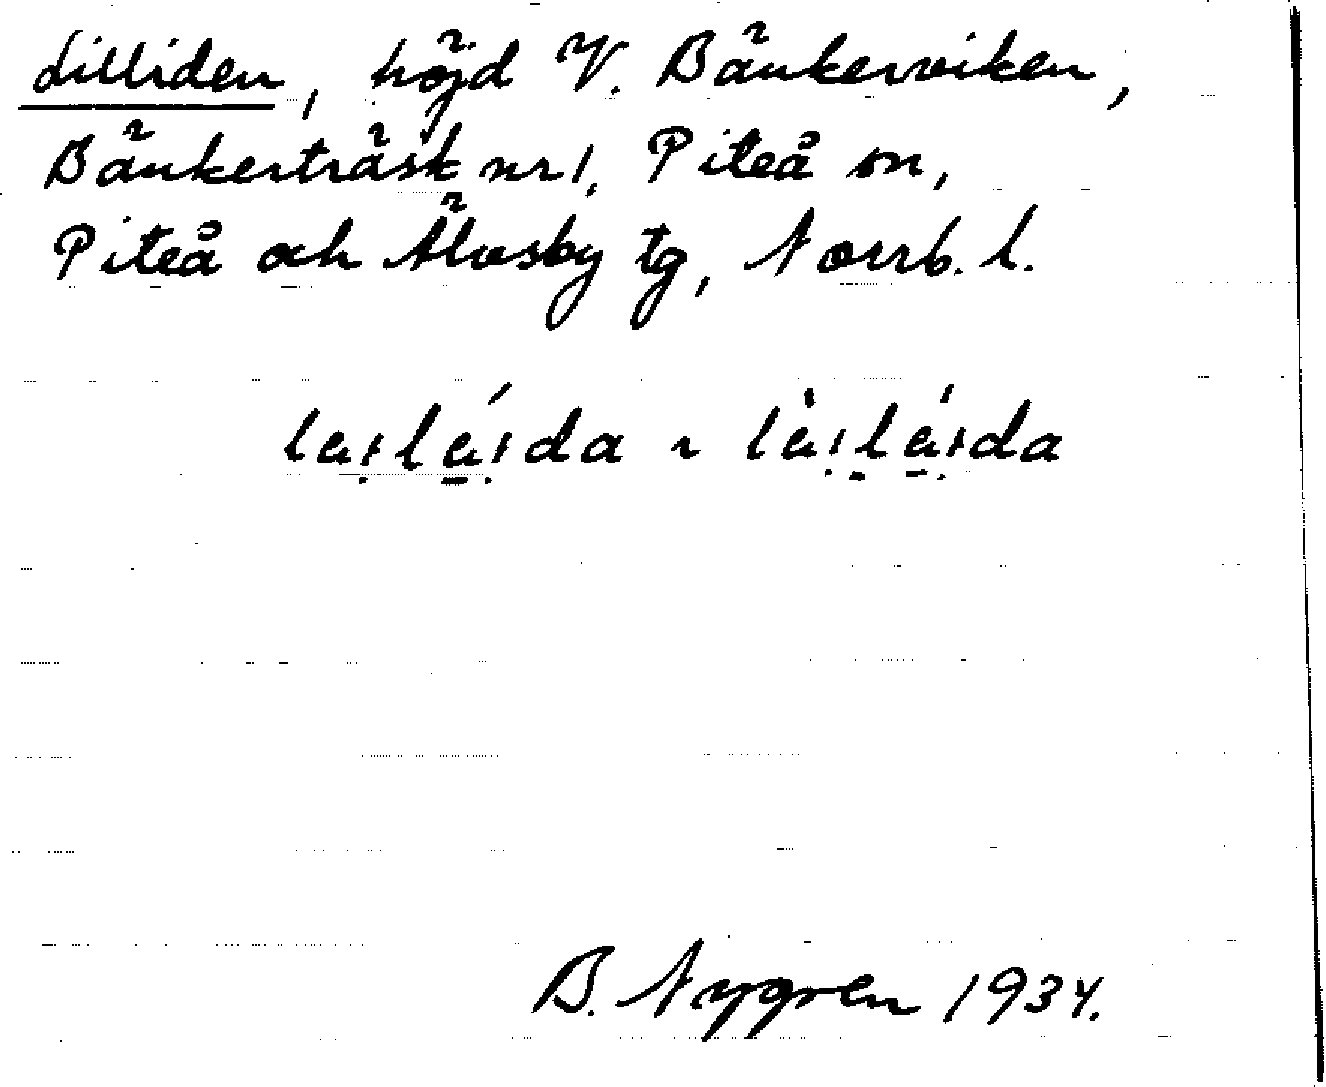 Lilliden, höjd V. Bänkerviken,
Bänkerträsk nr 1, Piteå sn,
Piteå och Älvsby tg, Norrb. l.
B. Nygren 1934.